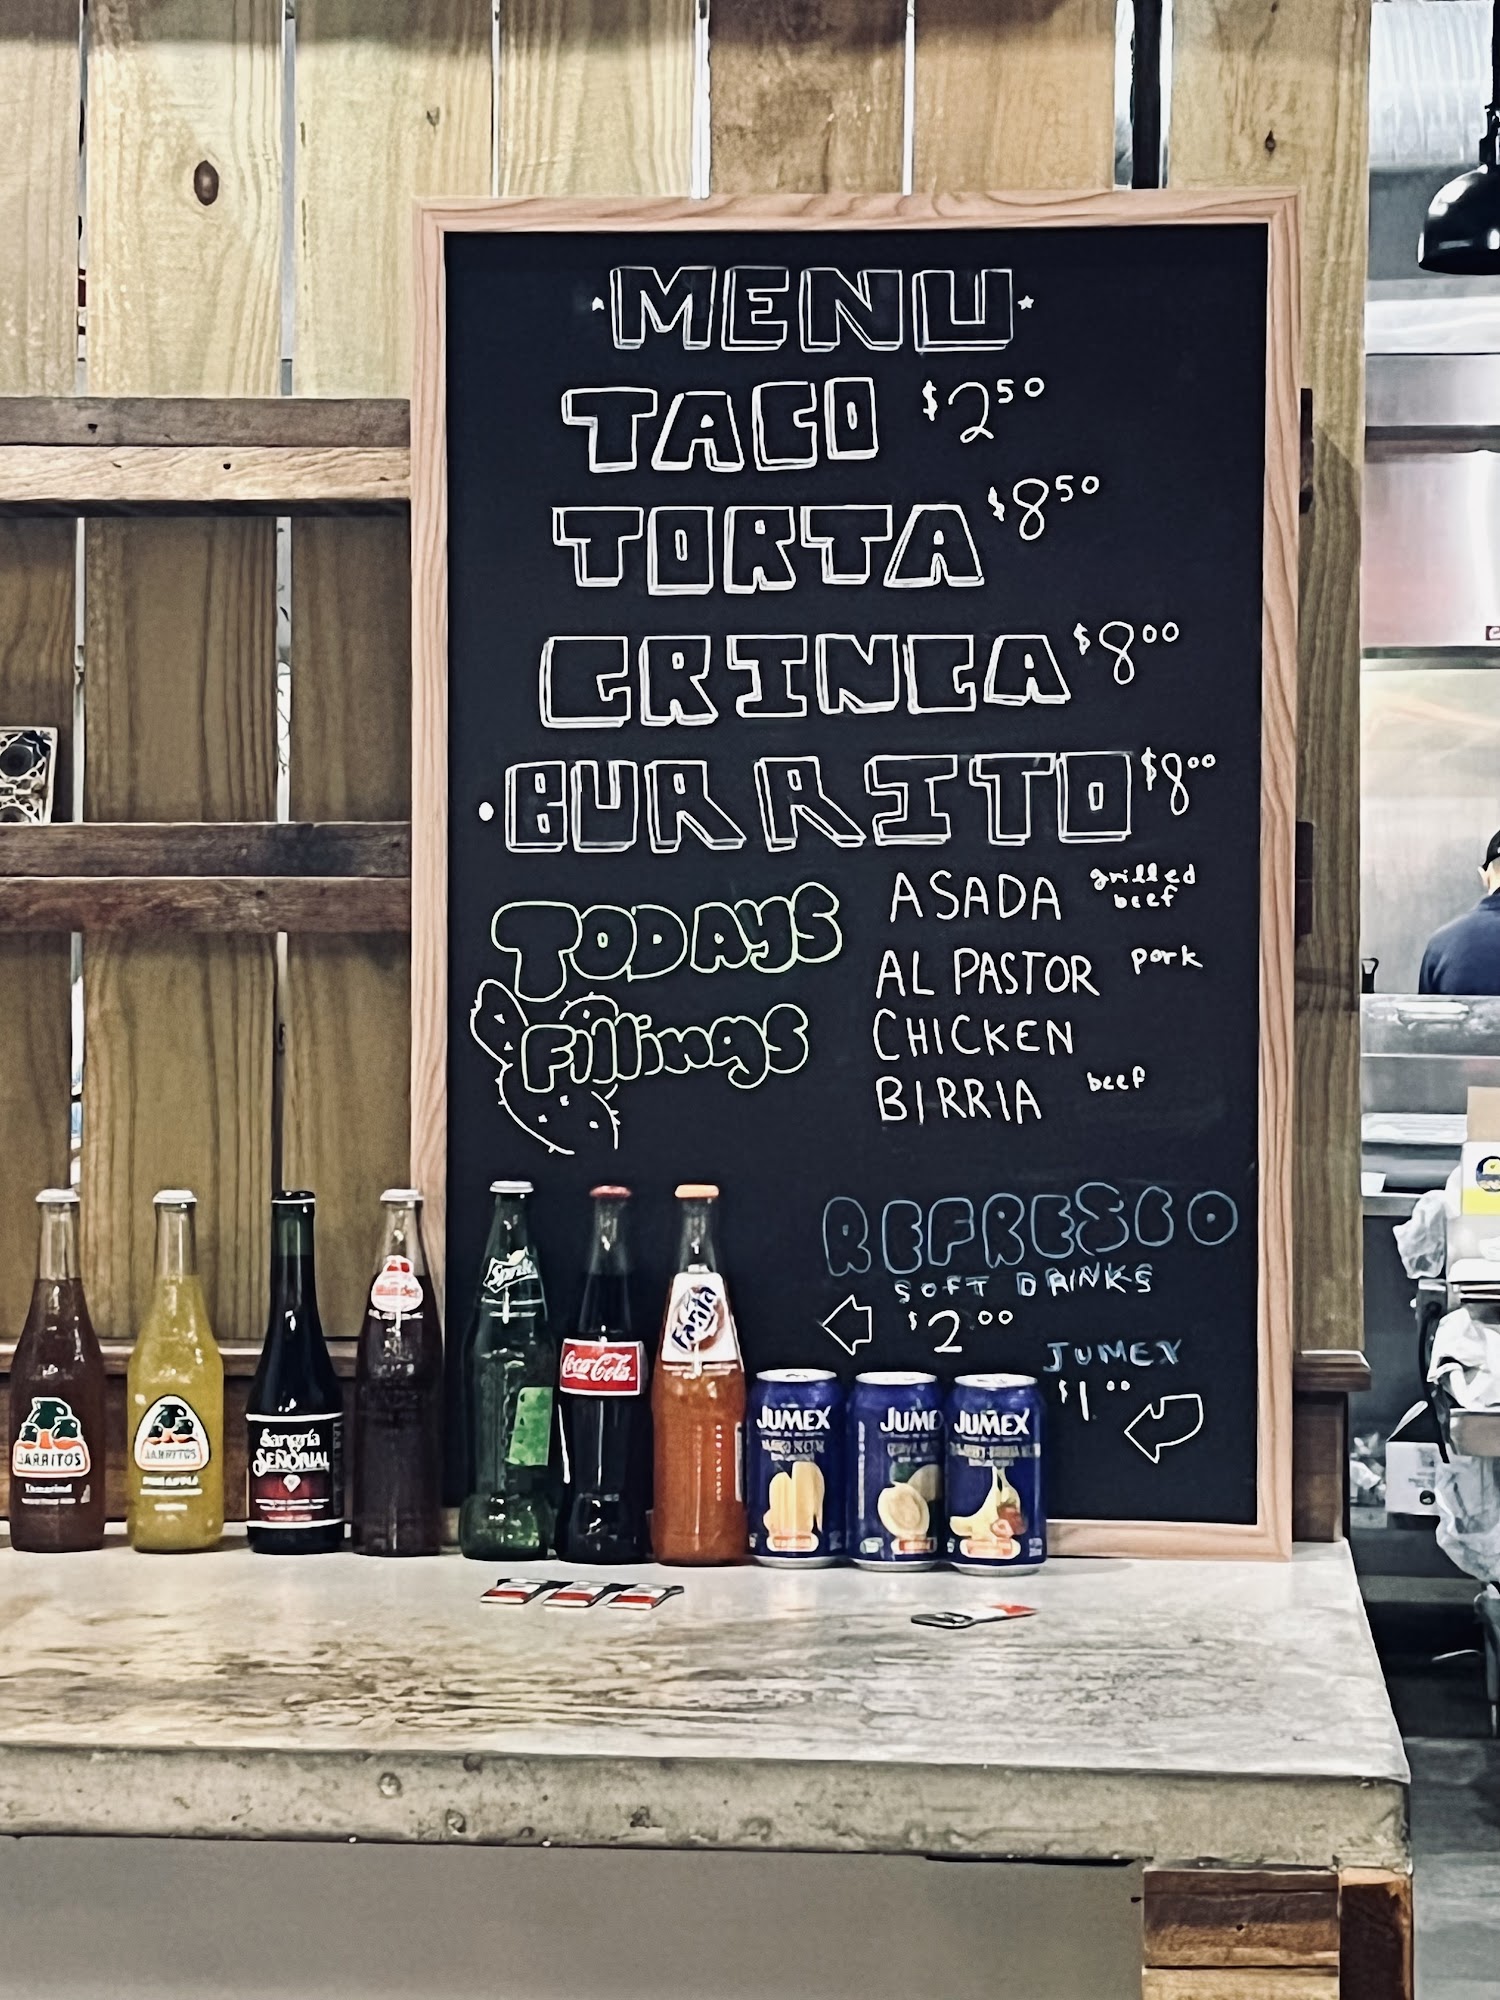 MENU
TACO $2.50
TORTA $8.50
GRINGA $8.00
BURRITO $8.00
TODAYS
Fillings
ASADA grilled beef
AL PASTOR pork
CHICKEN
BIRRIA beef
REFRESCO
SOFT DRINKS
$2.00
JUMEX
$1.00
JARRITOS
Tamarind
JARRITOS
PINEAPPLE
Sangría
SEÑORIAL
Mundet
Sprite
Coca-Cola
Fanta
JUMEX
JUMEX
JUMEX